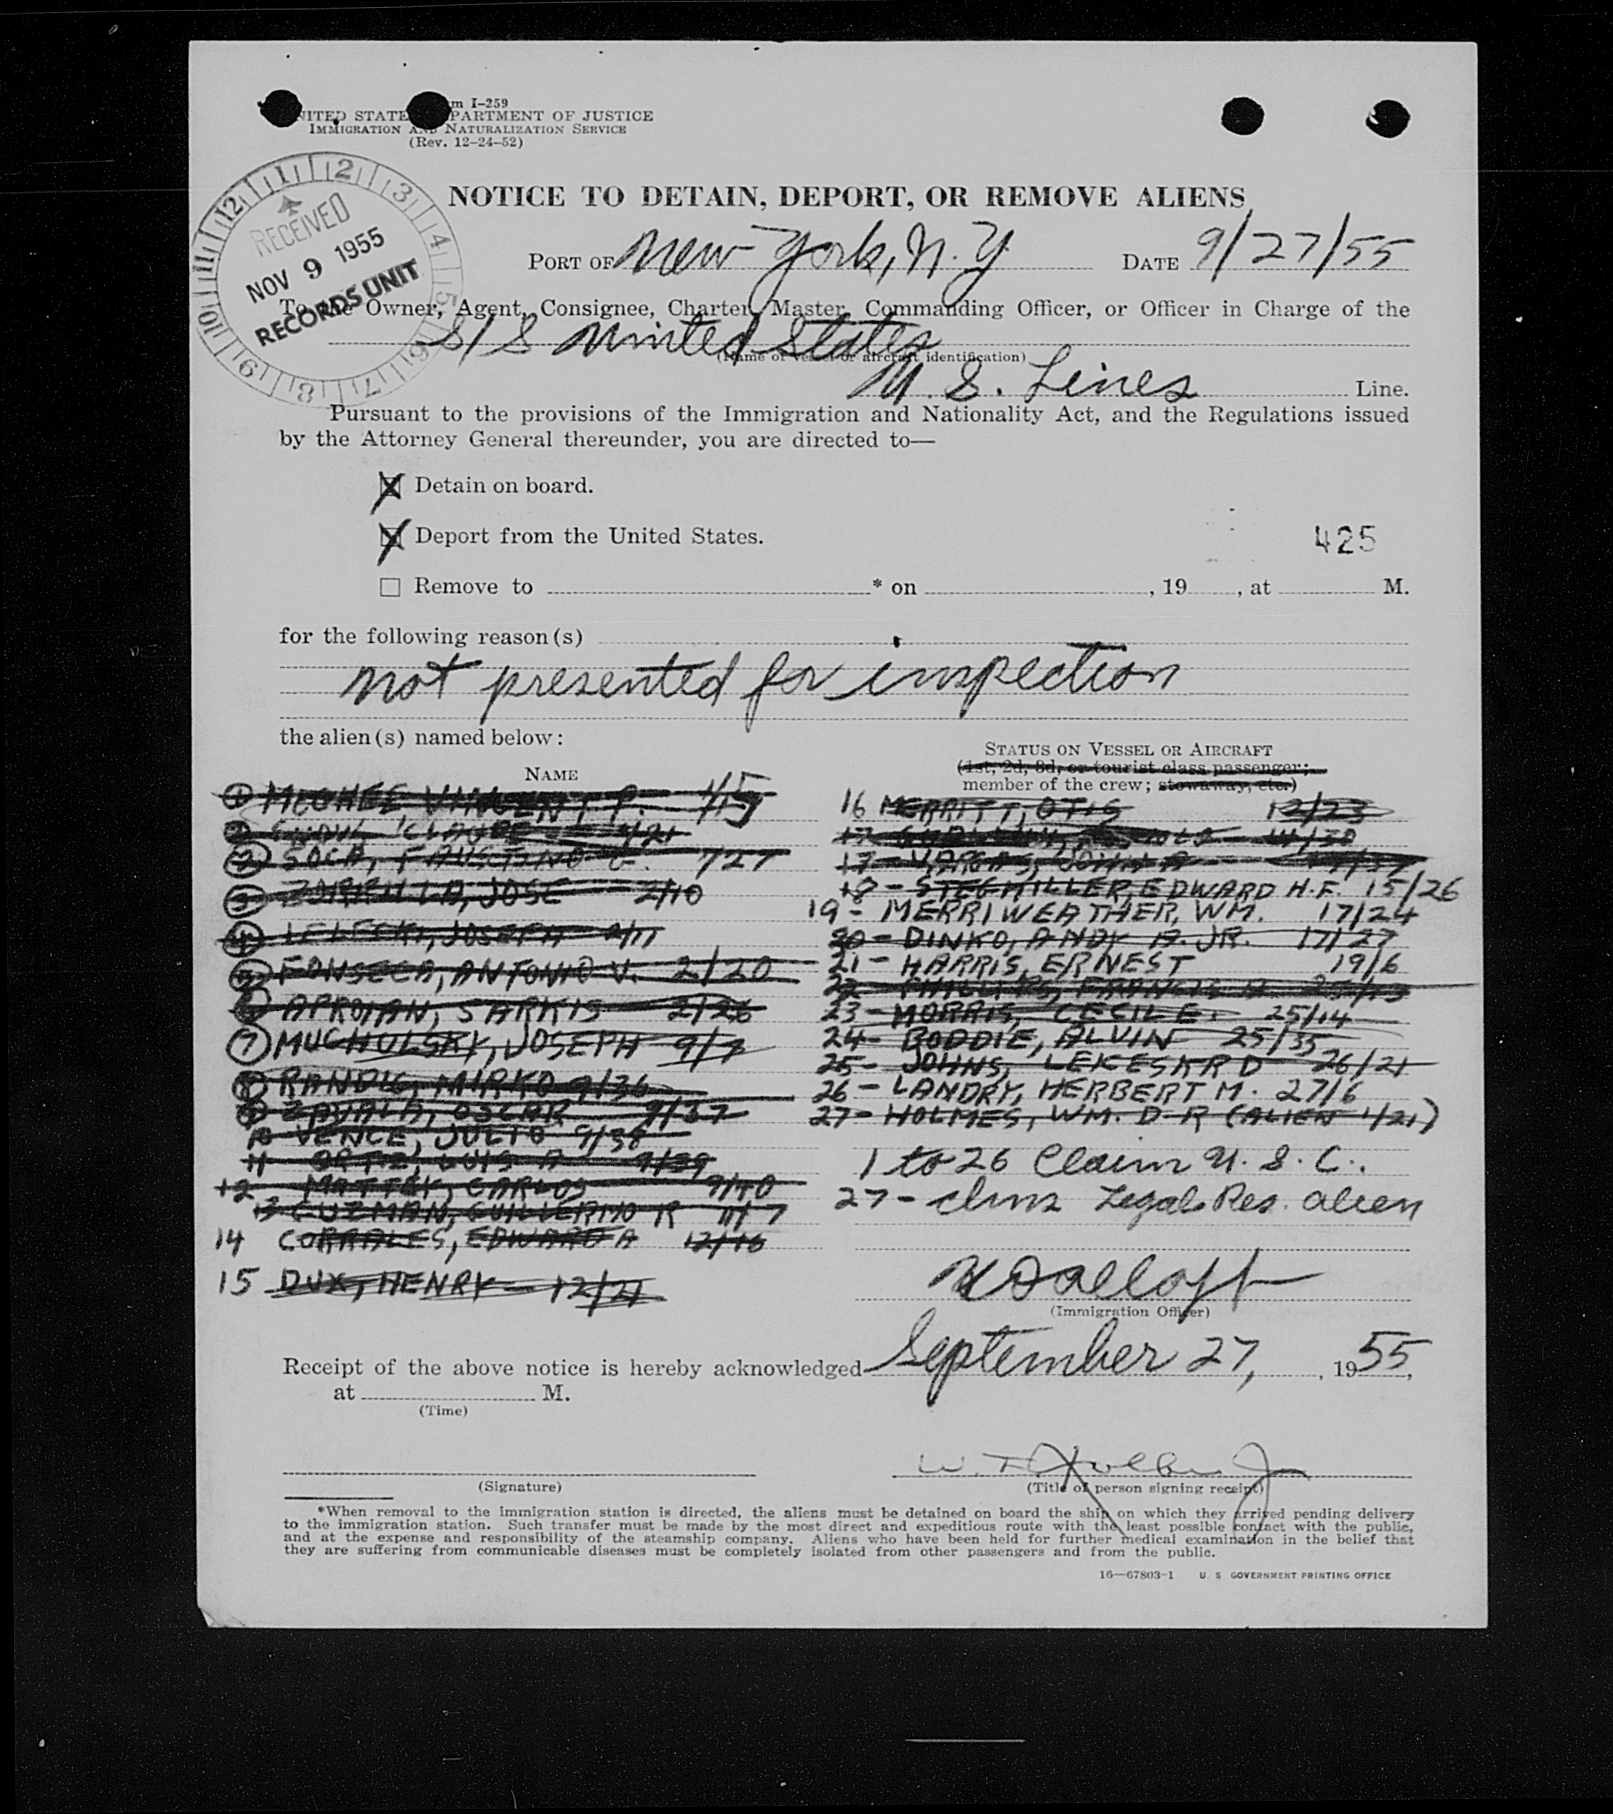 m I-259
NITED STATE PARTMENT OF JUSTICE
IMMIGRATION AND NATURALIZATION SERVICE
(Rev. 12-24-52)
RECEIVED
NOV 9 1955
RECORDS UNIT
1 2 3 4 5 6 7 8 9 10 11 12
NOTICE TO DETAIN, DEPORT, OR REMOVE ALIENS
PORT OF New York, N.Y. DATE 9/27/55
To the Owner, Agent, Consignee, Charter, Master, Commanding Officer, or Officer in Charge of the
S/S United States
(Name of vessel or aircraft identification)
U.S. Lines Line.
Pursuant to the provisions of the Immigration and Nationality Act, and the Regulations issued
by the Attorney General thereunder, you are directed to—
X Detain on board.
X Deport from the United States.
425
Remove to * on , 19 , at M.
for the following reason(s)
not presented for inspection
the alien(s) named below:
NAME
STATUS ON VESSEL OR AIRCRAFT
(1st, 2d, 3d, or tourist class passenger;
member of the crew; stowaway, etc.)
1 VINCENT P.
2 SOCA, FAUSTINO 1/27
3 JOSE 2/10
4 JOSEPH 2/11
5 FONSECA, ANTONIO V. 2/20
6 SARKIS 2/26
7 MUCHOLSKY, JOSEPH 9/7
8 RANDIC, MIRKO 9/36
9 ZAVALA, OSCAR 9/37
10 VENCE, JULIO 9/38
11 ORTIZ, LUIS A 9/39
12 CARLOS 9/40
13 GUZMAN, GUILLERMO R
14 CORRALES, EDWARD A 12/16
15 DUX, HENRY 12/21
16 MERRITT, OTIS 12/23
17 - VARGAS, JOHN A
18 - STEGMILLER, EDWARD H.F. 15/26
19 - MERRIWEATHER, WM. 17/24
20 - DINKO, ANDY A. JR. 17/27
21 - HARRIS, ERNEST 19/6
22 PHILLIPS, FRANCIS
23 - MORRIS, CECIL E. 25/14
24 - BODDIE, ALVIN 25/35
25 - JOHNS, D 26/21
26 - LANDRY, HERBERT M. 27/6
27 - HOLMES, WM. D-R (ALIEN 1/21)
1 to 26 Claim U.S.C.
27 - clms Legal Res. alien
(Immigration Officer)
Receipt of the above notice is hereby acknowledged September 27, 1955,
at M.
(Time)
W. T. Jr
(Signature) (Title of person signing receipt)
*When removal to the immigration station is directed, the aliens must be detained on board the ship on which they arrived pending delivery
to the immigration station. Such transfer must be made by the most direct and expeditious route with the least possible contact with the public,
and at the expense and responsibility of the steamship company. Aliens who have been held for further medical examination in the belief that
they are suffering from communicable diseases must be completely isolated from other passengers and from the public.
16—67803-1 U. S. GOVERNMENT PRINTING OFFICE